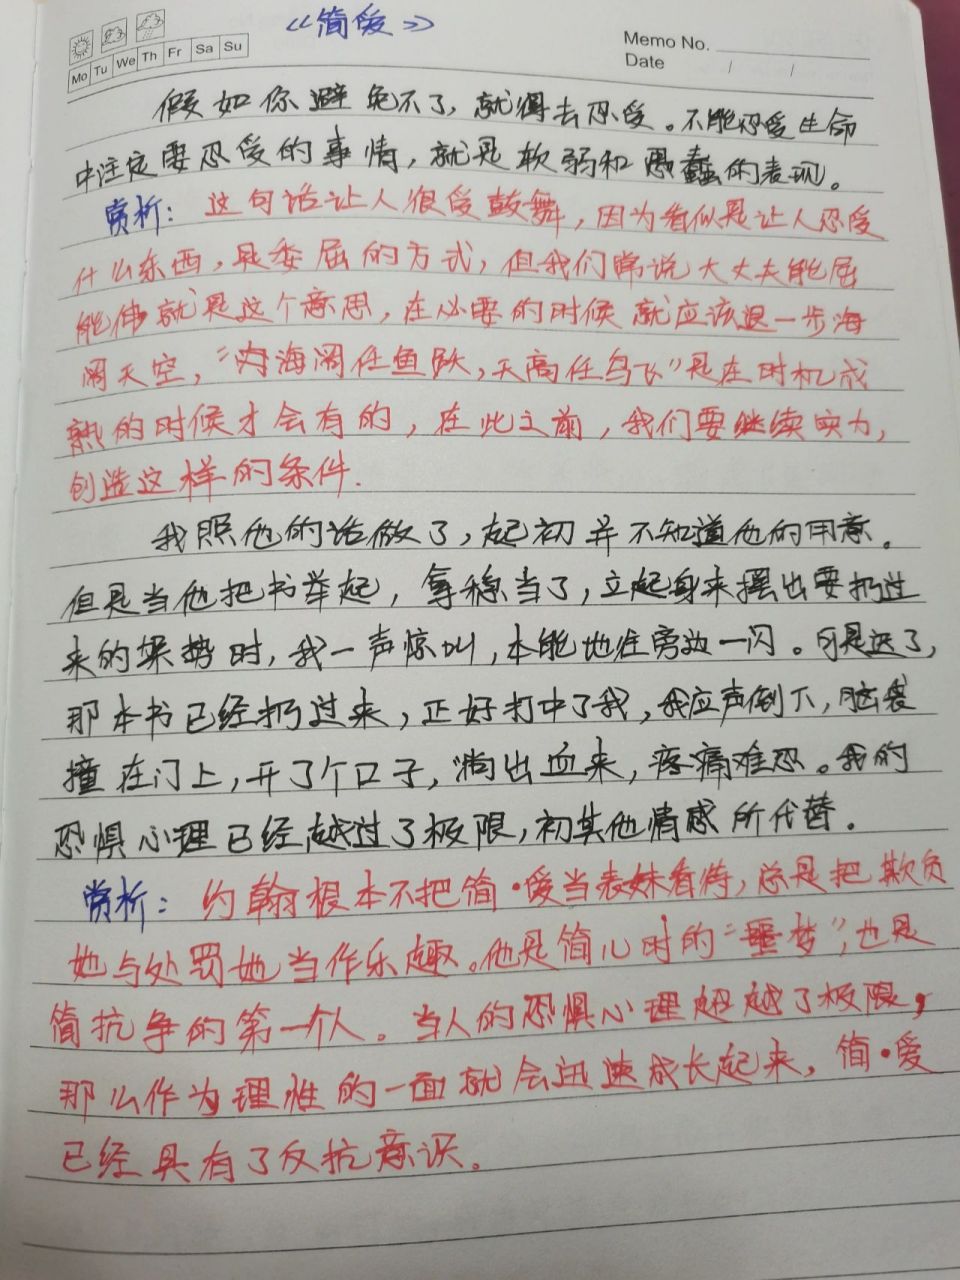 《简爱》
Memo No.
Date / /
Mo Tu We Th Fr Sa Su
假如你避免不了，就得去忍受。不能忍受生命
中注定要忍受的事情，就是软弱和愚蠢的表现。
赏析：这句话让人很受鼓舞，因为看似是让人忍受
什么东西，是委屈的方式，但我们常说大丈夫能屈
能伸就是这个意思，在必要的时候就应该退一步海
阔天空，“海阔任鱼跃，天高任鸟飞”是在时机成
熟的时候才会有的，在此之前，我们要继续实力，
创造这样的条件.
我照他的话做了，起初并不知道他的用意。
但是当他把书举起，拿稳当了，立起身来摆出要扔过
来的架势时，我一声惊叫，本能地往旁边一闪。可是迟了，
那本书已经扔过来，正好打中了我，我应声倒下，脑袋
撞在门上，开了个口子，淌出血来，疼痛难忍。我的
恐惧心理已经越过了极限，初其他情感所代替.
赏析：约翰根本不把简·爱当表妹看待，总是把欺负
她与处罚她当作乐趣。他是简儿时的“噩梦”，也是
简抗争的第一个人。当人的恐惧心理超越了极限，
那么作为理性的一面就会迅速成长起来，简·爱
已经具有了反抗意识。